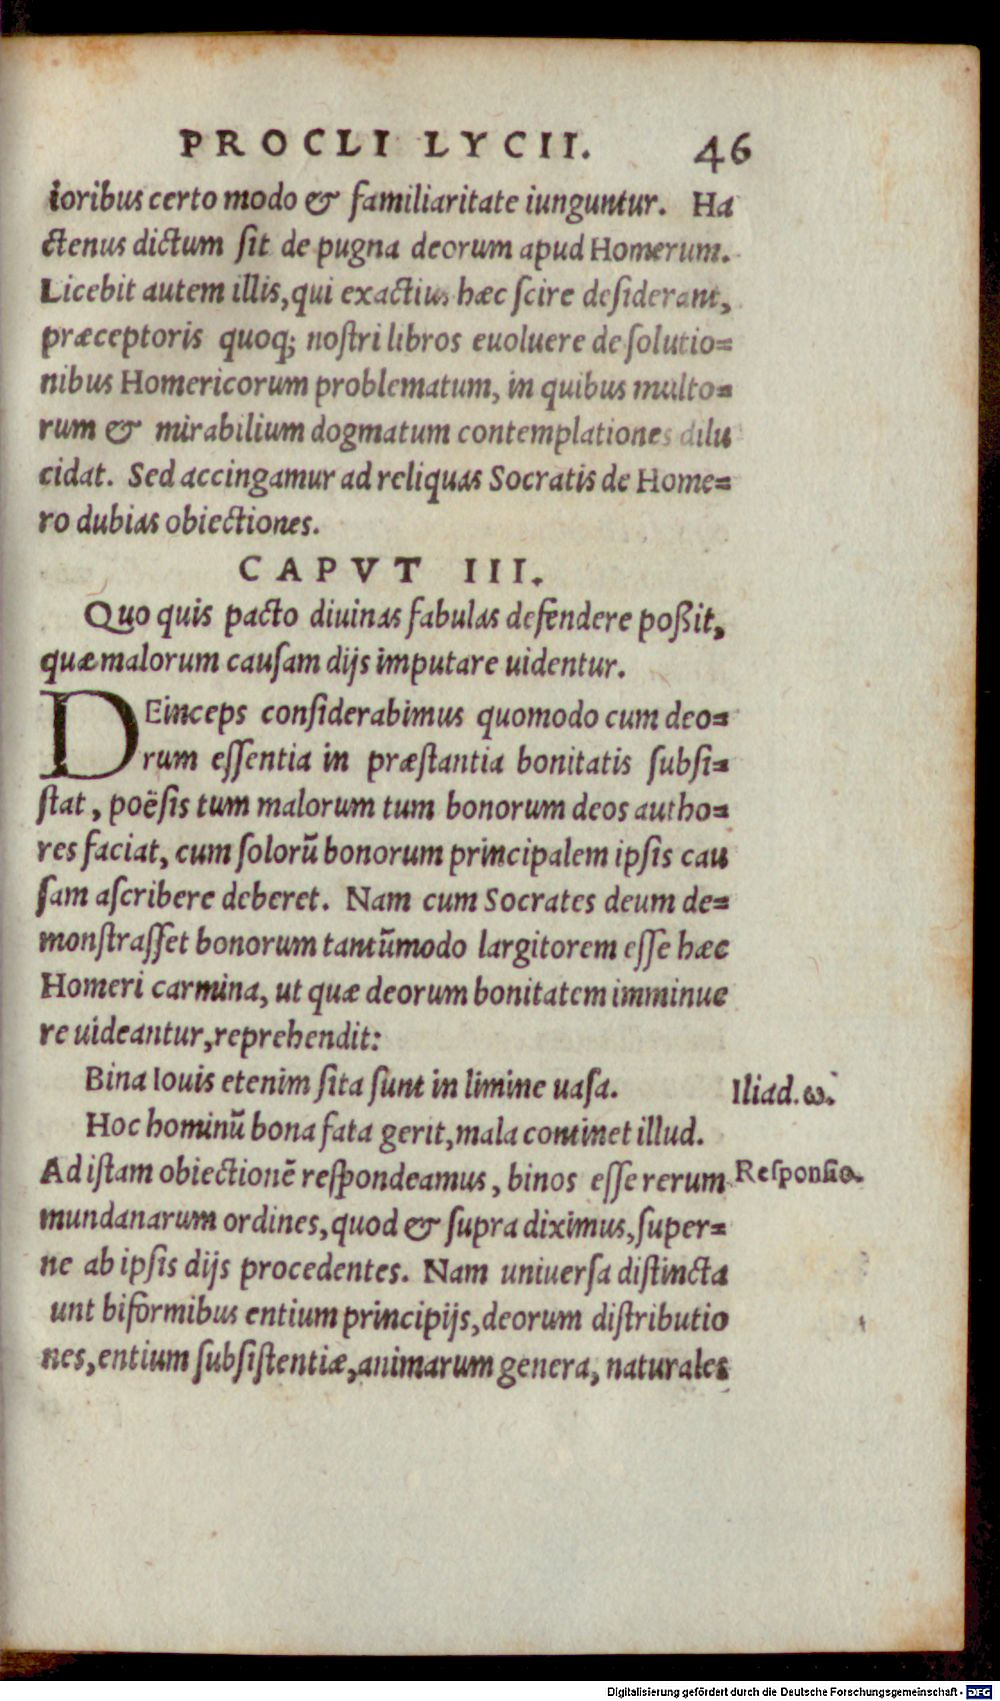 PROCLI LYCII. 46
ioribus certo modo & familiaritate iunguntur. Ha
ctenus dictum sit de pugna deorum apud Homerum.
Licebit autem illis, qui exactius hæc scire desiderant,
præceptoris quoq; nostri libros euoluere de solutio=
nibus Homericorum problematum, in quibus multo=
rum & mirabilium dogmatum contemplationes dilu
cidat. Sed accingamur ad reliquas Socratis de Home=
ro dubias obiectiones.
CAPVT III.
Quo quis pacto diuinas fabulas defendere poßit,
quæ malorum causam dijs imputare uidentur.
DEinceps considerabimus quomodo cum deo=
rum essentia in præstantia bonitatis subsi=
stat, poësis tum malorum tum bonorum deos autho=
res faciat, cum solorū bonorum principalem ipsis cau
sam ascribere deberet. Nam cum Socrates deum de=
monstrasset bonorum tantūmodo largitorem esse hæc
Homeri carmina, ut quæ deorum bonitatem imminue
re uideantur, reprehendit:
Bina Iouis etenim sita sunt in limine uasa. Iliad. ω.
Hoc hominū bona fata gerit, mala continet illud.
Ad istam obiectionē respondeamus, binos esse rerum Responsio.
mundanarum ordines, quod & supra diximus, super=
ne ab ipsis dijs procedentes. Nam uniuersa distincta
unt biformibus entium principijs, deorum distributio
nes, entium subsistentiæ, animarum genera, naturales
Digitalisierung gefördert durch die Deutsche Forschungsgemeinschaft - DFG